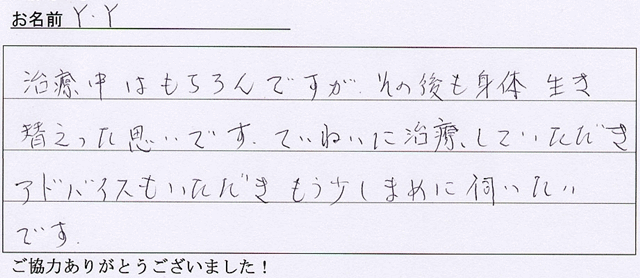 お名前 Y.Y
治療中はもちろんですが、その後も身体 生き
替えった思いです。ていねいに治療していただき
アドバイスもいただき もう少しまめに伺いたい
です。
ご協力ありがとうございました！